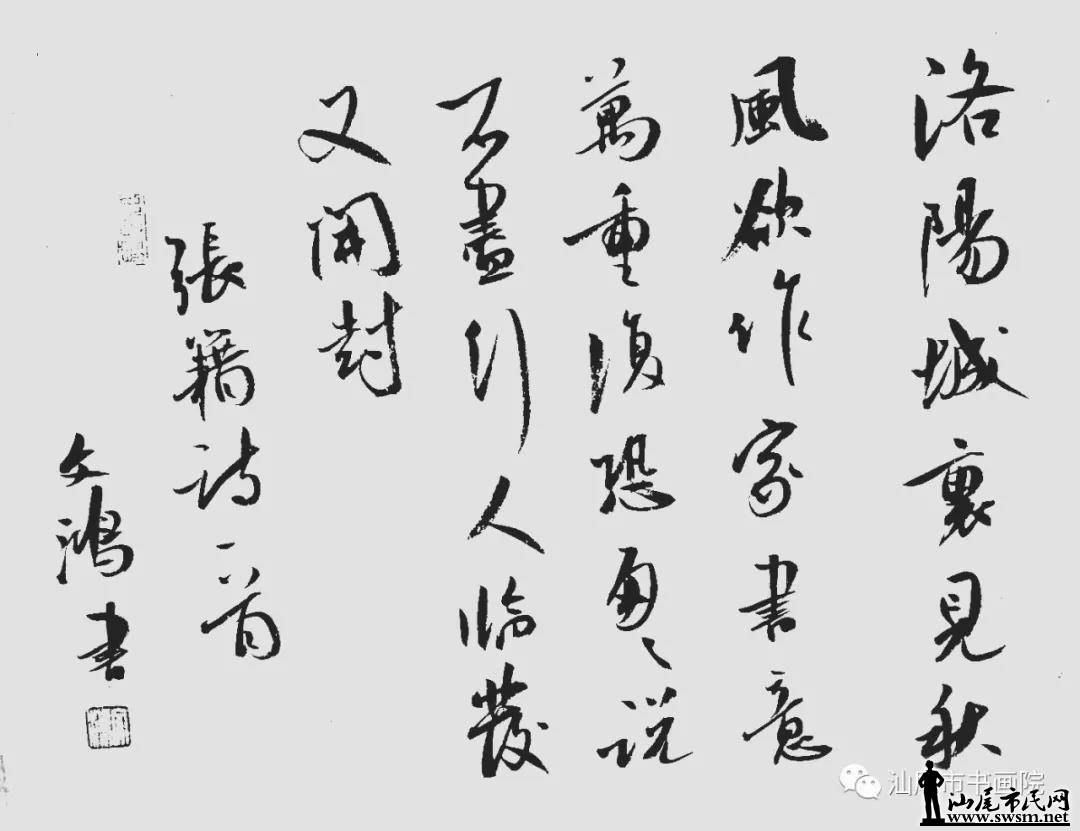 洛陽城裏見秋
風欲作家書意
萬重復恐匆〻説
不盡行人臨發
又開封
張籍詩一首
文鴻書
汕尾市书画院
汕尾市民网
www.swsm.net